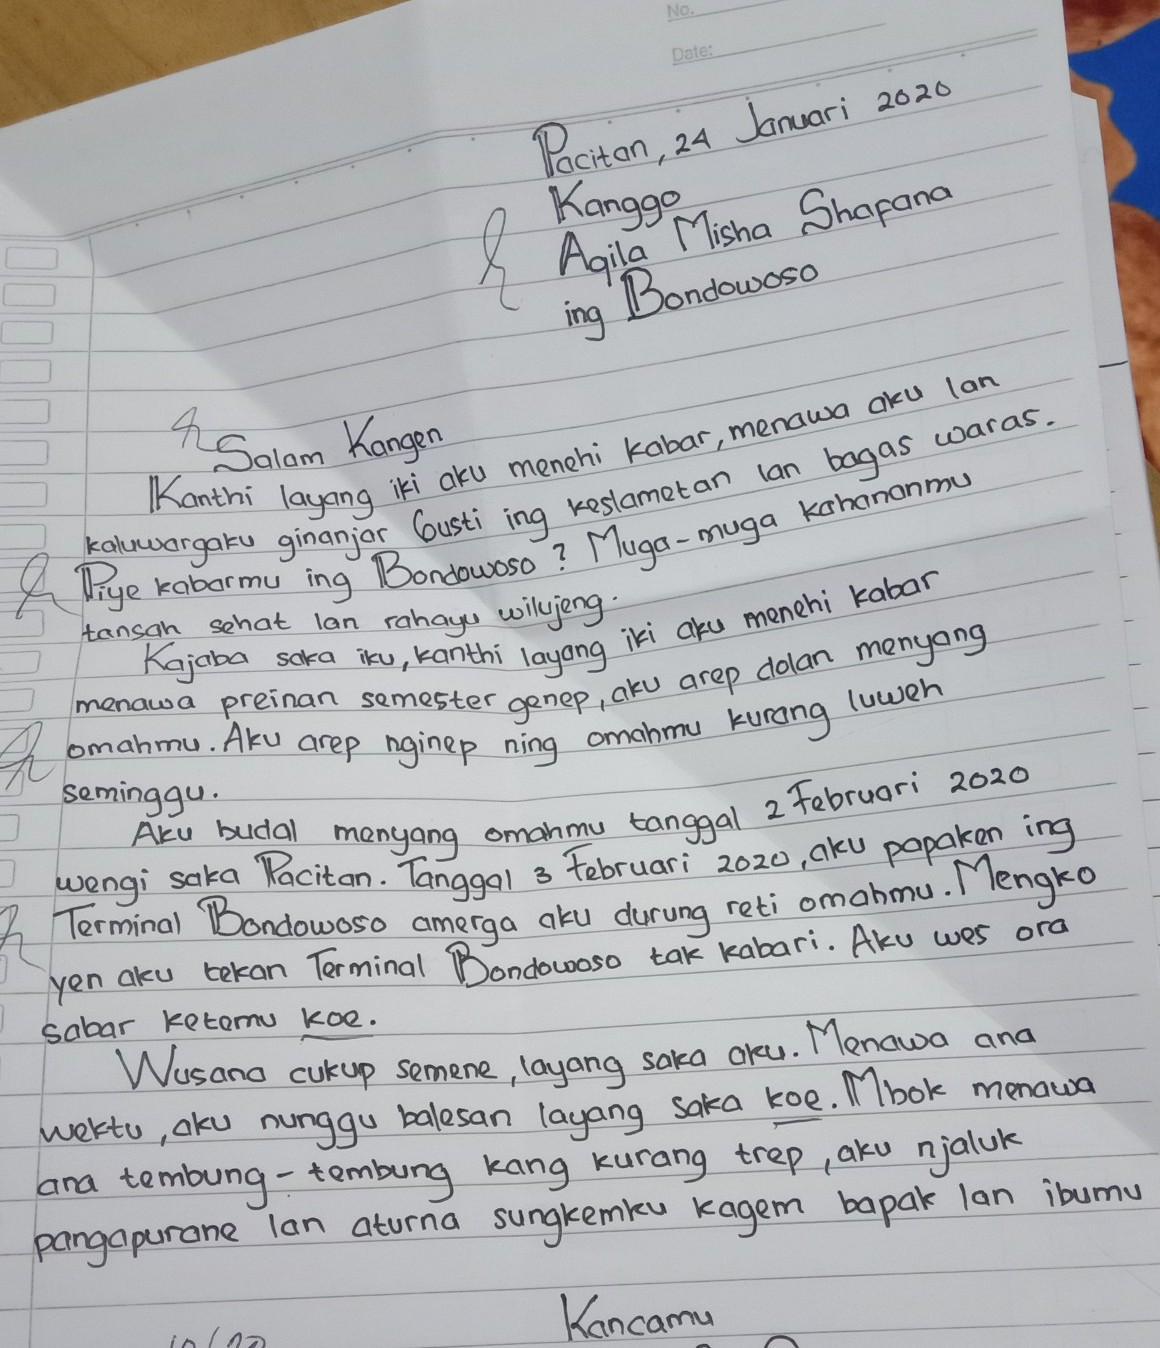 No.
Date:
Pacitan, 24 Januari 2020
Kanggo
Aqila Misha Shafana
ing Bondowoso
Salam Kangen
Kanthi layang iki aku menehi kabar, menawa aku lan
kaluwargaku ginanjar Gusti ing keslametan lan bagas waras.
Piye kabarmu ing Bondowoso? Muga-muga kahananmu
tansah sehat lan rahayu wilujeng.
Kajaba saka iku, kanthi layang iki aku menehi kabar
menawa preinan semester genep, aku arep dolan menyang
omahmu. Aku arep nginep ning omahmu kurang luweh
seminggu.
Aku budal menyang omahmu tanggal 2 Februari 2020
wengi saka Pacitan. Tanggal 3 Februari 2020, aku papaken ing
Terminal Bondowoso amerga aku durung reti omahmu. Mengko
yen aku tekan Terminal Bondowoso tak kabari. Aku wes ora
sabar ketemu koe.
Wusana cukup semene, layang saka aku. Menawa ana
wektu, aku nunggu balesan layang saka koe. Mbok menawa
ana tembung-tembung kang kurang trep, aku njaluk
pangapurane lan aturna sungkemku kagem bapak lan ibumu
Kancamu